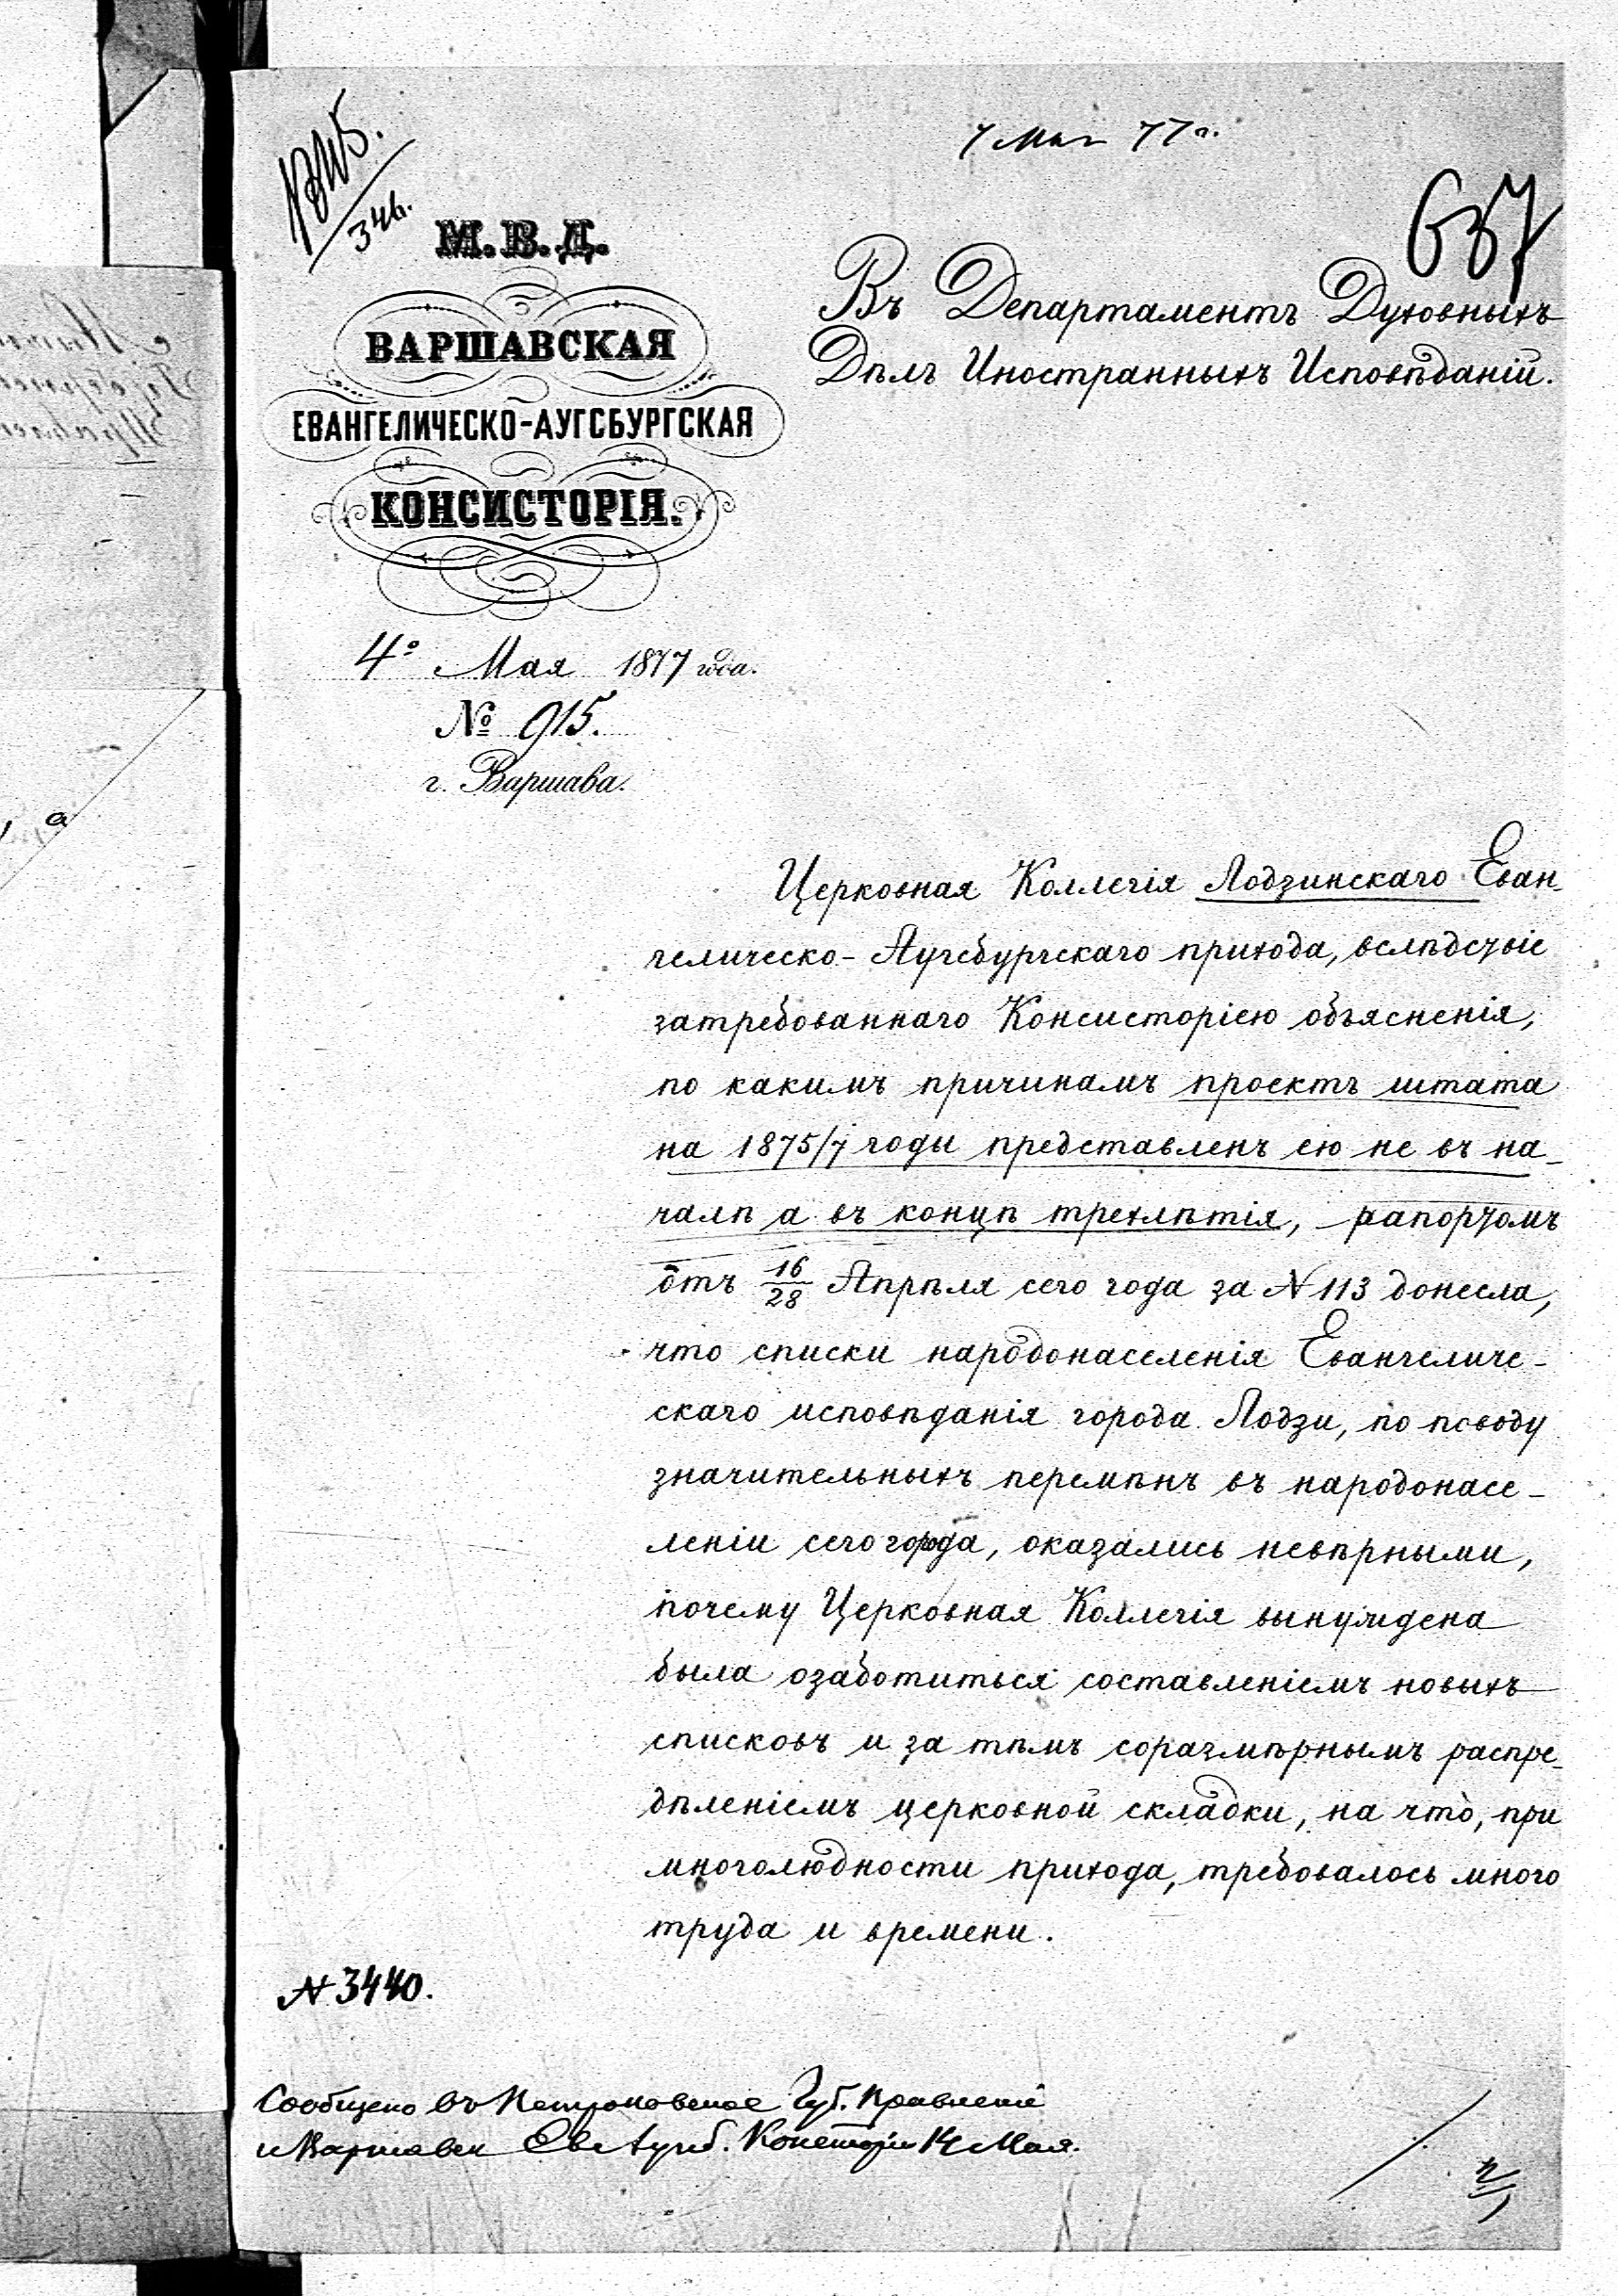 7 Мая 77 г.
346.
637
М. В. Д.
ВАРШАВСКАЯ
ЕВАНГЕЛИЧЕСКО-АУГСБУРГСКАЯ
КОНСИСТОРІЯ.
4º Мая 1877 года.
№ 915.
г. Варшава.
Въ Департаментъ Духовныхъ
Дѣлъ Иностранныхъ Исповѣданій.
Церковная Коллегія Лодзинскаго Еван-
гелическо-Аугсбургскаго прихода, вслѣдствіе
затребованнаго Консисторіею объясненія,
по какимъ причинамъ проектъ штата
на 1875/7 годы представленъ ею не въ на-
чалѣ а въ концѣ трехлѣтія, рапортомъ
отъ 16/28 Апрѣля сего года за N 113 донесла,
что списки народонаселенія Евангеличе-
скаго исповѣданія города Лодзи, по поводу
значительныхъ перемѣнъ въ народонасе-
леніи сего города, оказались невѣрными,
почему Церковная Коллегія вынуждена
была озаботиться составленіемъ новыхъ
списковъ и за тѣмъ соразмѣрнымъ распре-
дѣленіемъ церковной складки, на что, при
многолюдности прихода, требовалось много
труда и времени.
N 3440.
Сообщено въ Петроковское Губ. Правленіе
и Варшавск Ев Аугсб. Консисторіи 14 Мая.